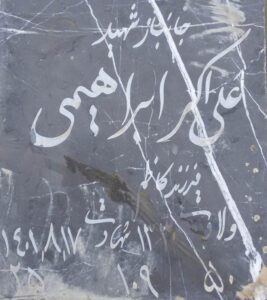 جانباز شهید
علی اکبر ابراهیمی
فرزند کاظم
ولادت ۱۳ شهادت ۱۴۰۱٫۸٫۱۷
۵۰